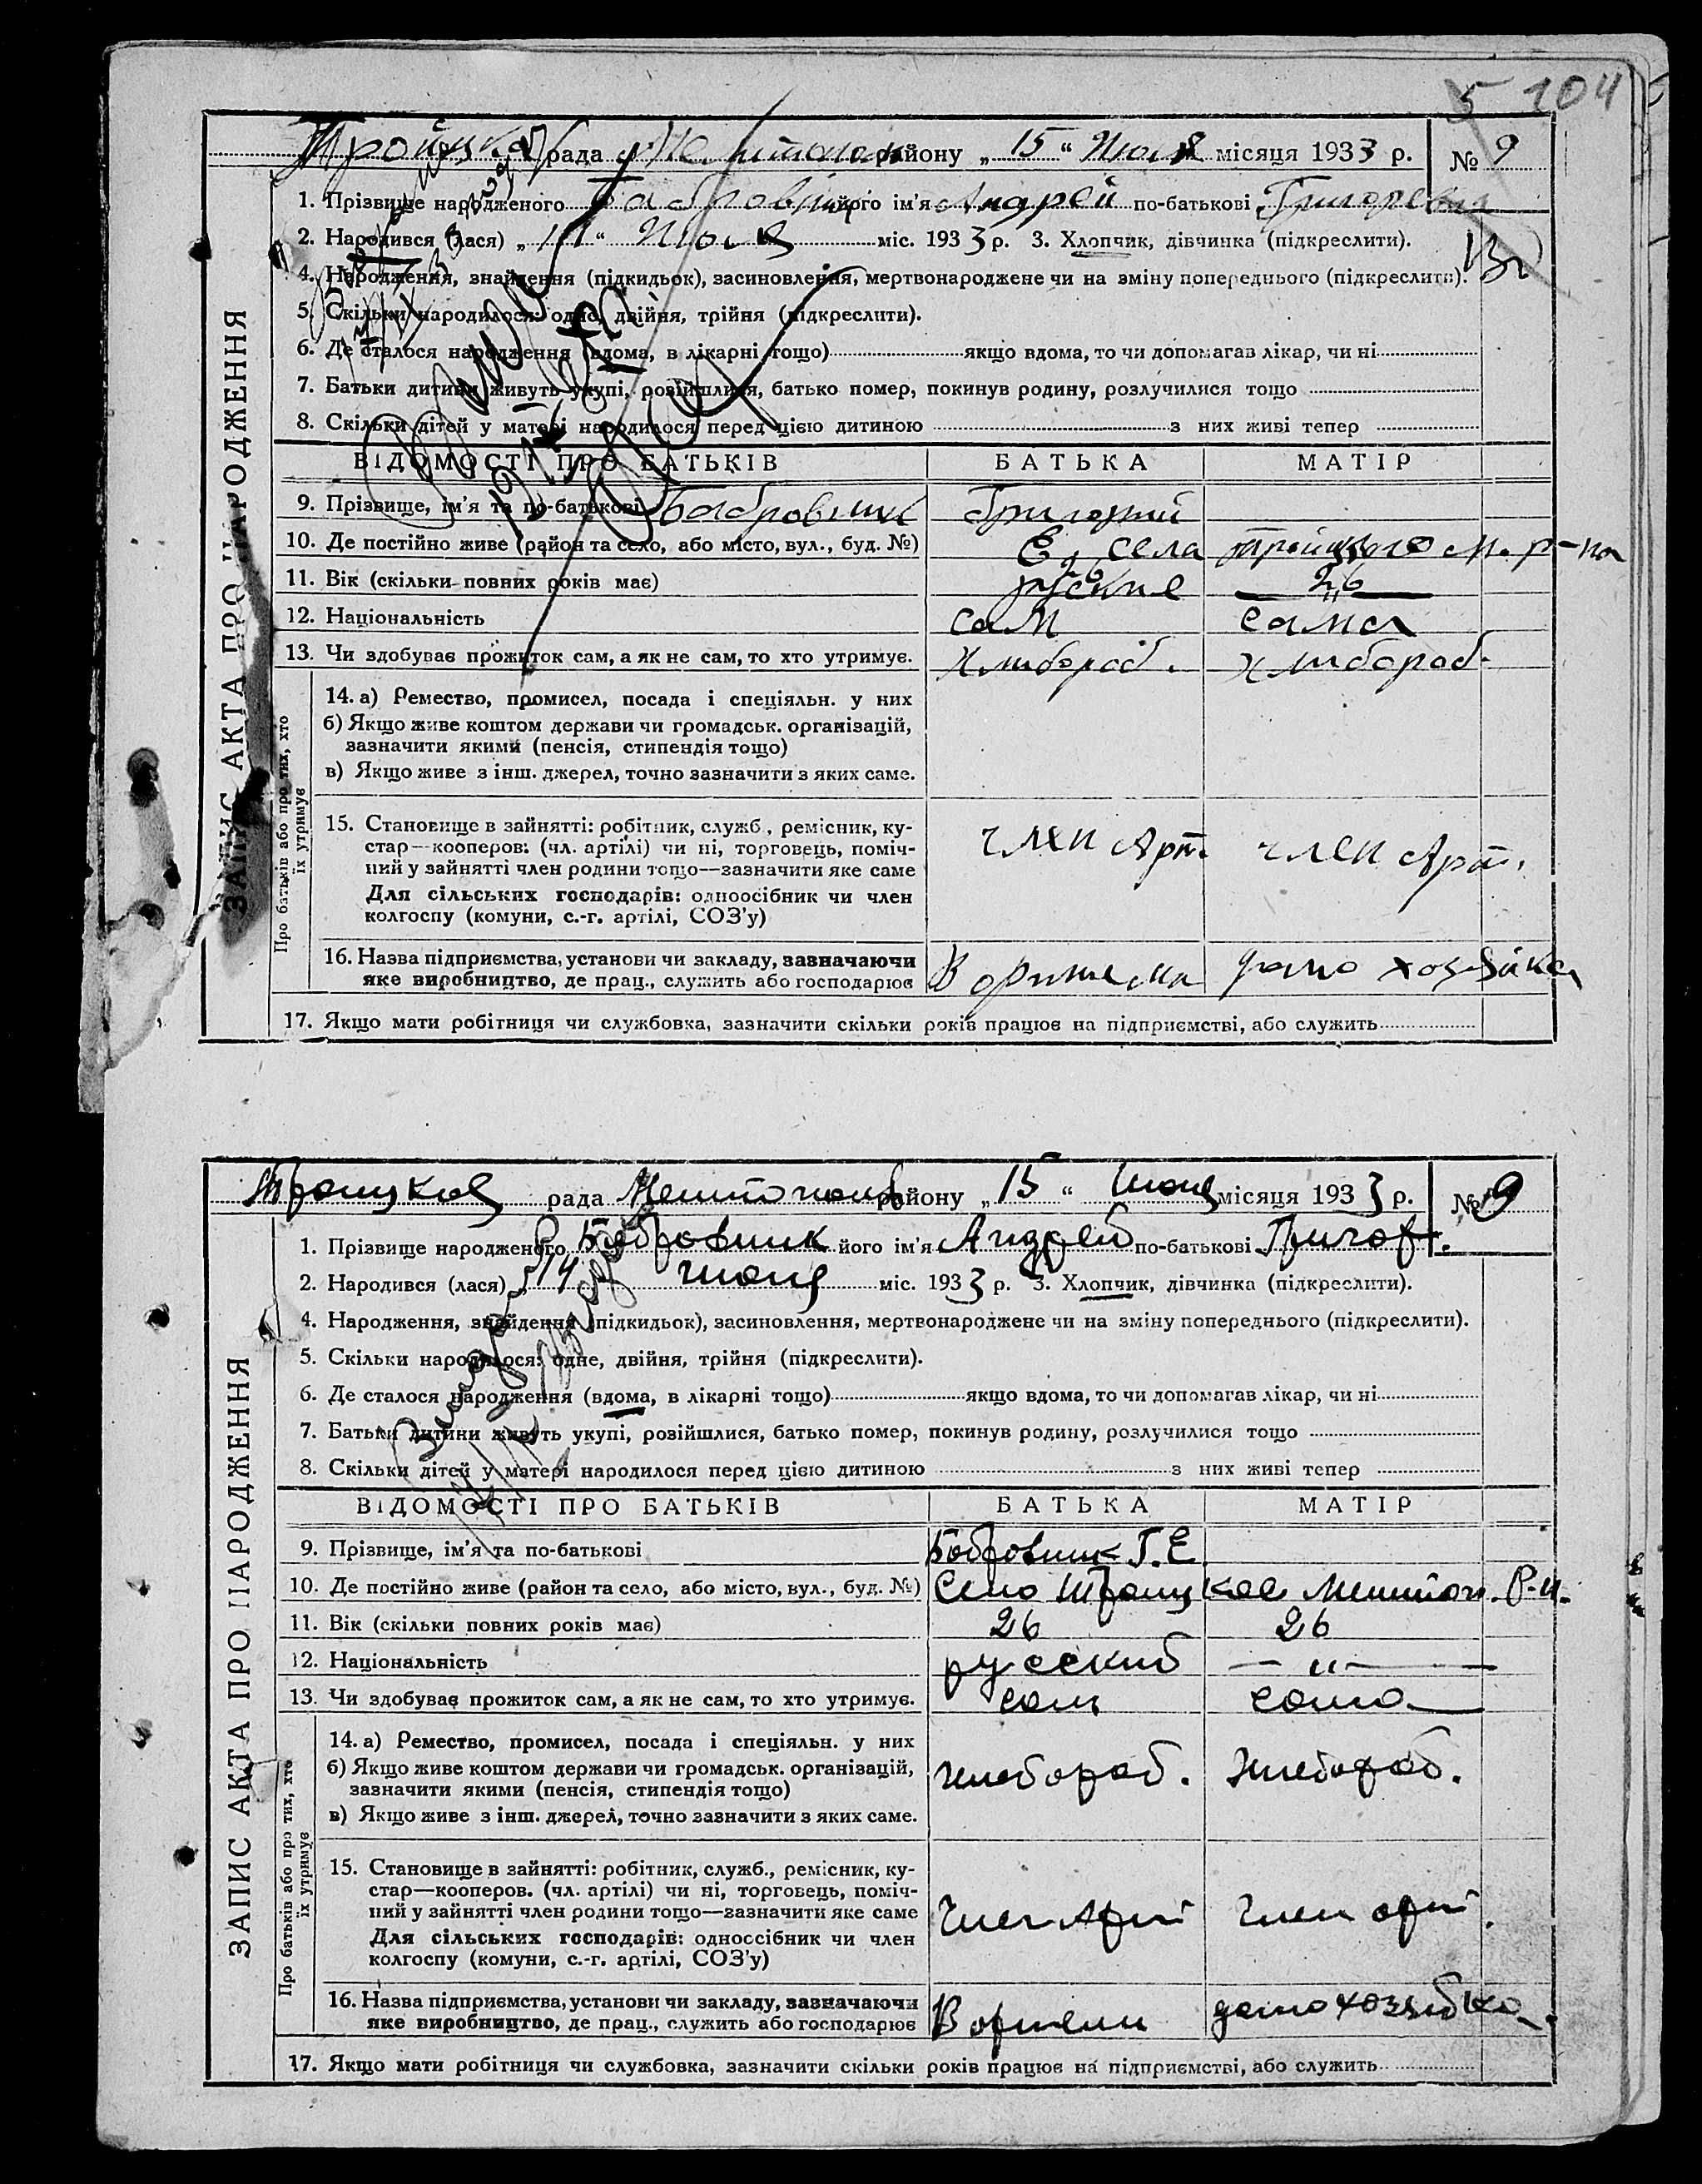 5 104
Тройцка рада Мелитопол району „ 15 “ Июля місяця 1933 р. № 9
1. Прізвище народженого Бабровник його ім'я Андрей по-батькові Григоревич
2. Народився (лася) „ 14 “ Июля міс. 1933 р. 3. Хлопчик, дівчинка (підкреслити).
4. Народження, знайдення (підкидьок), засиновлення, мертвонароджене чи на зміну попереднього (підкреслити).
5. Скільки народилося: одно, двійня, трійня (підкреслити).
6. Де сталося народження (вдома, в лікарні тощо) якщо вдома, то чи допомагав лікар, чи ні
7. Батьки дитини живуть укупі, розійшлися, батько помер, покинув родину, розлучилися тощо
8. Скільки дітей у матері народилося перед цією дитиною з них живі тепер
ВІДОМОСТІ ПРО БАТЬКІВ БАТЬКА МАТІР
9. Прізвище, ім'я та по-батькові Бабровник Григорий
10. Де постійно живе (район та село, або місто, вул., буд. №) Е. села тройцкого М. р-на
11. Вік (скільки повних років має) 26 26
руские — " —
12. Національність сам сама
13. Чи здобуває прожиток сам, а як не сам, то хто утримує. хлибороб. хлибороб.
14. а) Ремество, промисел, посада і спеціяльн. у них
б) Якщо живе коштом держави чи громадськ. організацій,
зазначити якими (пенсія, стипендія тощо)
в) Якщо живе з інш. джерел, точно зазначити з яких саме.
15. Становище в зайнятті: робітник, служб., ремісник, ку-
стар—кооперов: (чл. артілі) чи ні, торговець, поміч-
ний у зайнятті член родини тощо—зазначити яке саме
член Арт. член Арт.
Для сільських господарів: одноосібник чи член
колгоспу (комуни, с.-г. артілі, СОЗ'у)
16. Назва підприємства, установи чи закладу, зазначаючи
яке виробництво, де прац., служить або господарює
В орители домо хозяйка
17. Якщо мати робітниця чи службовка, зазначити скільки років працює на підприємстві, або служить
ЗАПИС АКТА ПРО НАРОДЖЕННЯ
Про батьків або про тих, хто
їх утримує
Троицкая рада Мелитопол району „ 15 “ Июля місяця 1933 р. № 9
1. Прізвище народженого Бобровник його ім'я Андрей по-батькові Григор.
2. Народився (лася) „ 14 июля міс. 1933 р. 3. Хлопчик, дівчинка (підкреслити).
4. Народження, знайдення (підкидьок), засиновлення, мертвонароджене чи на зміну попереднього (підкреслити).
5. Скільки народилося: одне, двійня, трійня (підкреслити).
6. Де сталося народження (вдома, в лікарні тощо) якщо вдома, то чи допомагав лікар, чи ні
7. Батьки дитини живуть укупі, розійшлися, батько помер, покинув родину, розлучилися тощо
8. Скільки дітей у матері народилося перед цією дитиною з них живі тепер
ВІДОМОСТІ ПРО БАТЬКІВ БАТЬКА МАТІР
9. Прізвище, ім'я та по-батькові Бобровник Г. Е.
10. Де постійно живе (район та село, або місто, вул., буд. №) Село Троицкое Мелитоп. Р-н.
11. Вік (скільки повних років має) 26 26
12. Національність русский — " —
13. Чи здобуває прожиток сам, а як не сам, то хто утримує. сам сама
14. а) Ремество, промисел, посада і спеціяльн. у них
б) Якщо живе коштом держави чи громадськ. організацій,
зазначити якими (пенсія, стипендія тощо)
хлебороб. Хлебороб.
в) Якщо живе з інш. джерел, точно зазначити з яких саме.
15. Становище в зайнятті: робітник, служб., ремісник, ку-
стар—кооперов. (чл. артілі) чи ні, торговець, поміч-
ний у зайнятті член родини тощо—зазначити яке саме
Член Арт Член арт.
Для сільських господарів: одноосібник чи член
колгоспу (комуни, с.-г. артілі, СОЗ'у)
16. Назва підприємства, установи чи закладу, зазначаючи
яке виробництво, де прац., служить або господарює
В артели домохозяйка.
17. Якщо мати робітниця чи службовка, зазначити скільки років працює на підприємстві, або служить
ЗАПИС АКТА ПРО НАРОДЖЕННЯ
Про батьків або про тих, хто
їх утримує